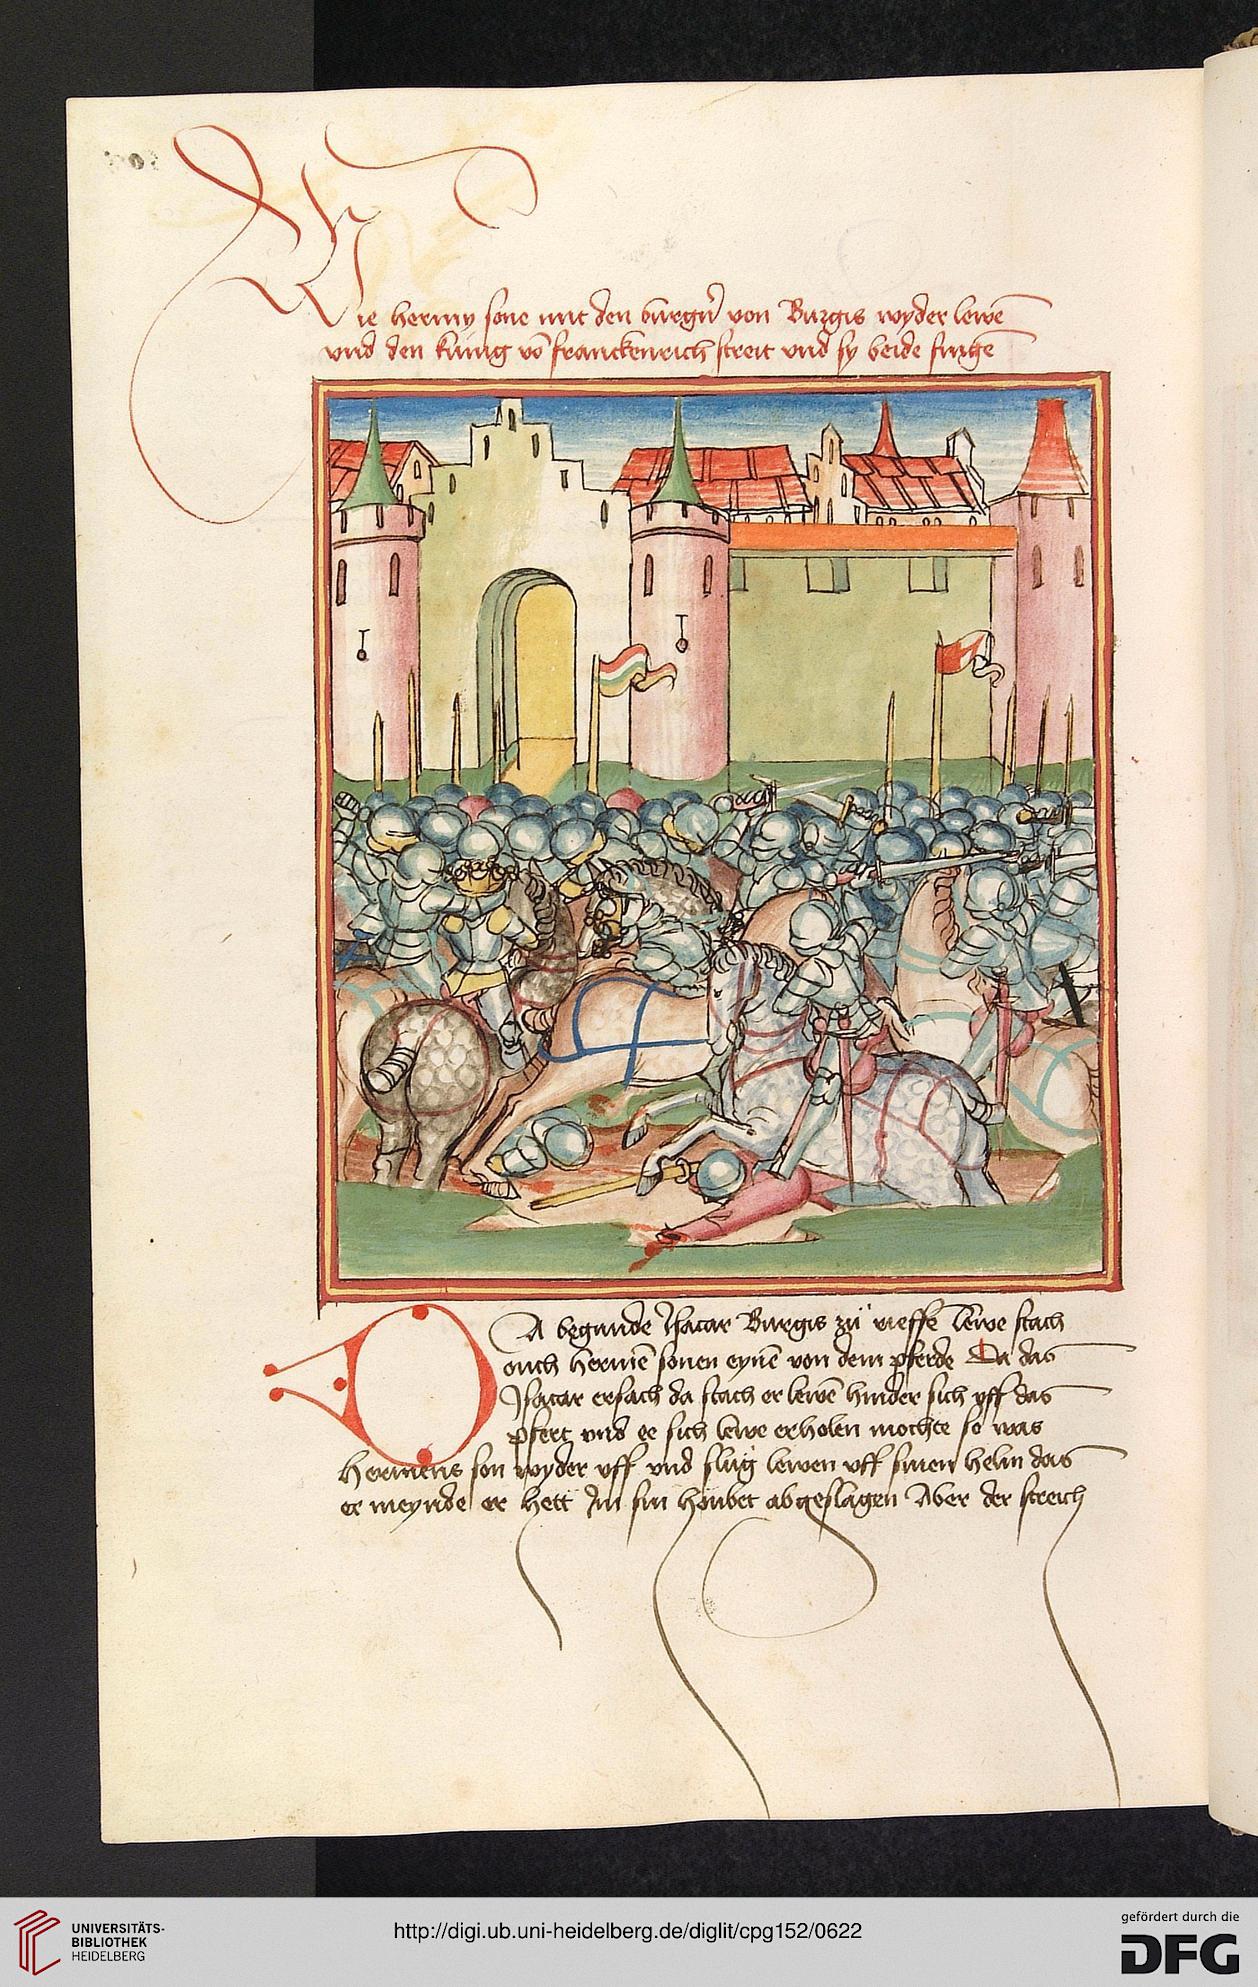 Wie hermy sone mit den burgn̄ von Burgis wyder lewē
vnd den kunig vō franckenrich streit vnd sy beide fingē
DA begunde Jsacar Burgis zu rieffē lewe stach
ouch Hermē sonen eynē von dem pferde Da das
Jsacar ersach da stach er lewē hinder sich vff das
pfert vnd ee sich lewe erholen mochte so was
Hermens son wyder vff vnd slug lewen vff sinen helm das
er meynde er hett Jm sin houbet abgeslagen Aber der streich
UNIVERSITÄTS-
BIBLIOTHEK
HEIDELBERG
http://digi.ub.uni-heidelberg.de/diglit/cpg152/0622
gefördert durch die
DFG